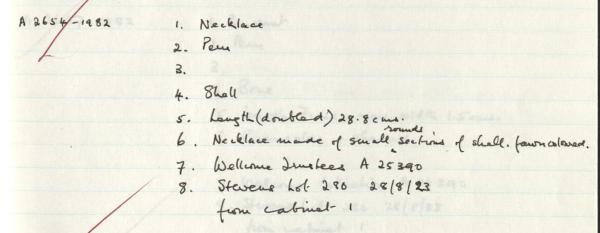 A 2654-1982 1. Necklace
2. Peru
3.
4. Shell
5. Length (doubled) 28.8 cms.
6. Necklace made of small rounds sections of shell. fawn coloured.
7. Wellcome Trustees A 25390
8. Stevens Lot 280 28/8/23
from cabinet 1